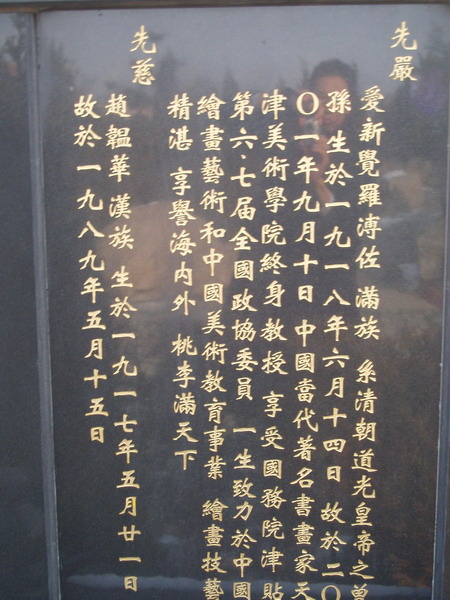 先嚴
愛新覺羅溥佐 滿族 系清朝道光皇帝之曾
孫 生於一九一八年六月十四日 故於二〇
〇一年九月十日 中國當代著名書畫家 天
津美術學院終身教授 享受國務院津貼
第六·七届全國政協委員 一生致力於中國
繪畫藝術和中國美術教育事業 繪畫技藝
精湛 享譽海内外 桃李滿天下
先慈
趙韞華 漢族 生於一九一七年五月廿一日
故於一九八九年五月十五日